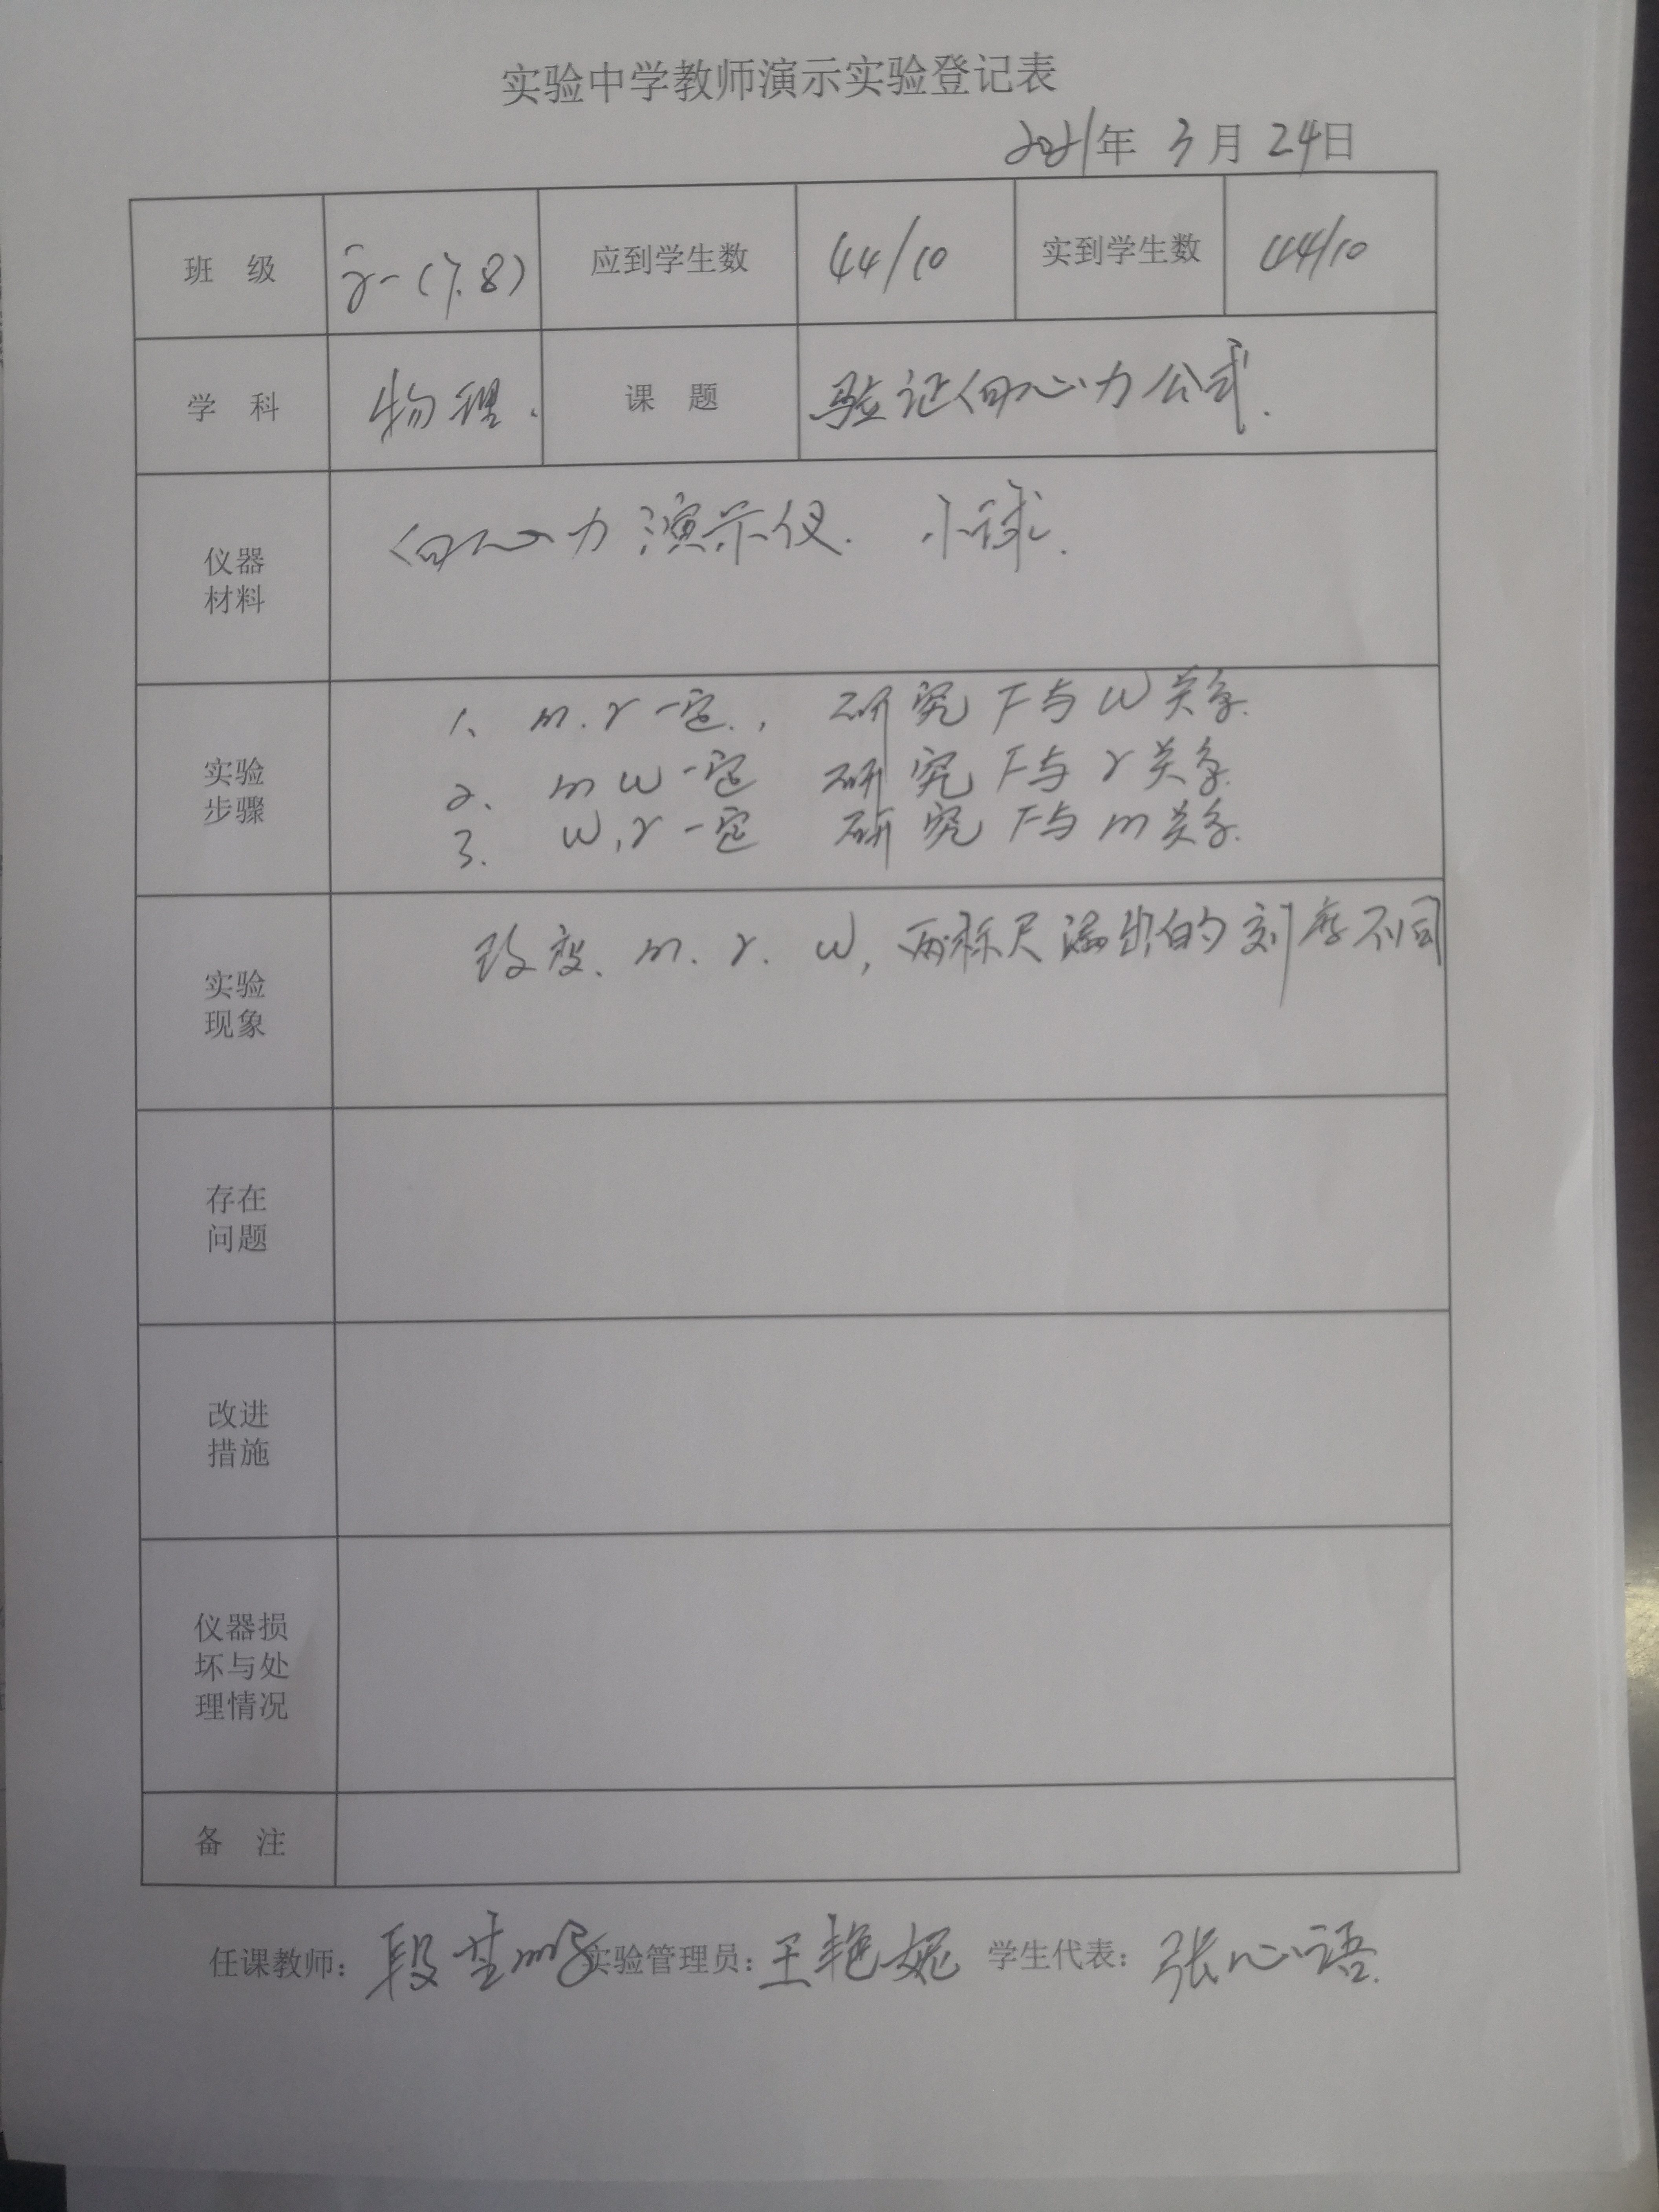 实验中学教师演示实验登记表
2021年 3月 24日
班 级 高一(7.8) 应到学生数 44/10 实到学生数 44/10
学 科 物理. 课 题 验证向心力公式.
仪器
材料
向心力演示仪. 小球.
实验
步骤
1、 m.r一定., 研究F与ω关系.
2、 m ω一定 研究F与r关系.
3. ω,r一定 研究F与m关系.
实验
现象
改变、m.r.ω,两标尺漏出的刻度不同
存在
问题
改进
措施
仪器损
坏与处
理情况
备 注
任课教师: 段 实验管理员: 王艳妮 学生代表: 张心语.